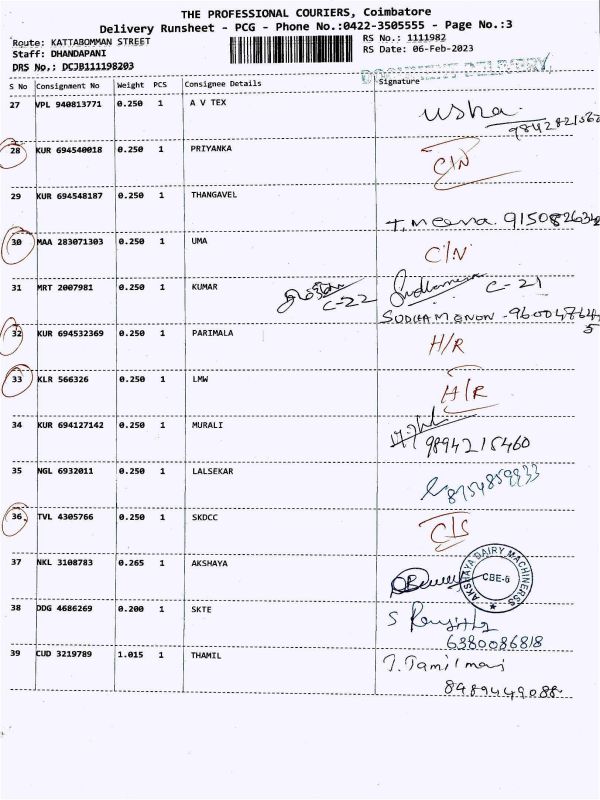 THE PROFESSIONAL COURIERS, Coimbatore
Delivery Runsheet - PCG - Phone No.:0422-3505555 - Page No.:3
Route: KATTABOMMAN STREET
RS No.: 1111982
Staff: DHANDAPANI
RS Date: 06-Feb-2023
DRS No.: DCJB111198203
DOCUMENT DELIVERY
S No Consignment No Weight PCS Consignee Details Signature
27 VPL 940813771 0.250 1 A V TEX usha.
28 KUR 694540018 0.250 1 PRIYANKA C/N
29 KUR 694548187 0.250 1 THANGAVEL
T. Meena. 9150826342
30 MAA 283071303 0.250 1 UMA C/N
31 MRT 2007981 0.250 1 KUMAR C-22 C-21
SUDHA MENON - 9600478645
32 KUR 694532369 0.250 1 PARIMALA H/R
33 KLR 566326 0.250 1 LMW H/R
34 KUR 694127142 0.250 1 MURALI
9894215460
35 NGL 6932011 0.250 1 LALSEKAR
8754859933
36 TVL 4305766 0.250 1 SKDCC C/S
37 NKL 3108783 0.265 1 AKSHAYA
AKSHAYA DAIRY MACHINERSS
CBE-6
38 DDG 4686269 0.200 1 SKTE
6380086818
39 CUD 3219789 1.015 1 THAMIL J. Tamilmani
8989449088